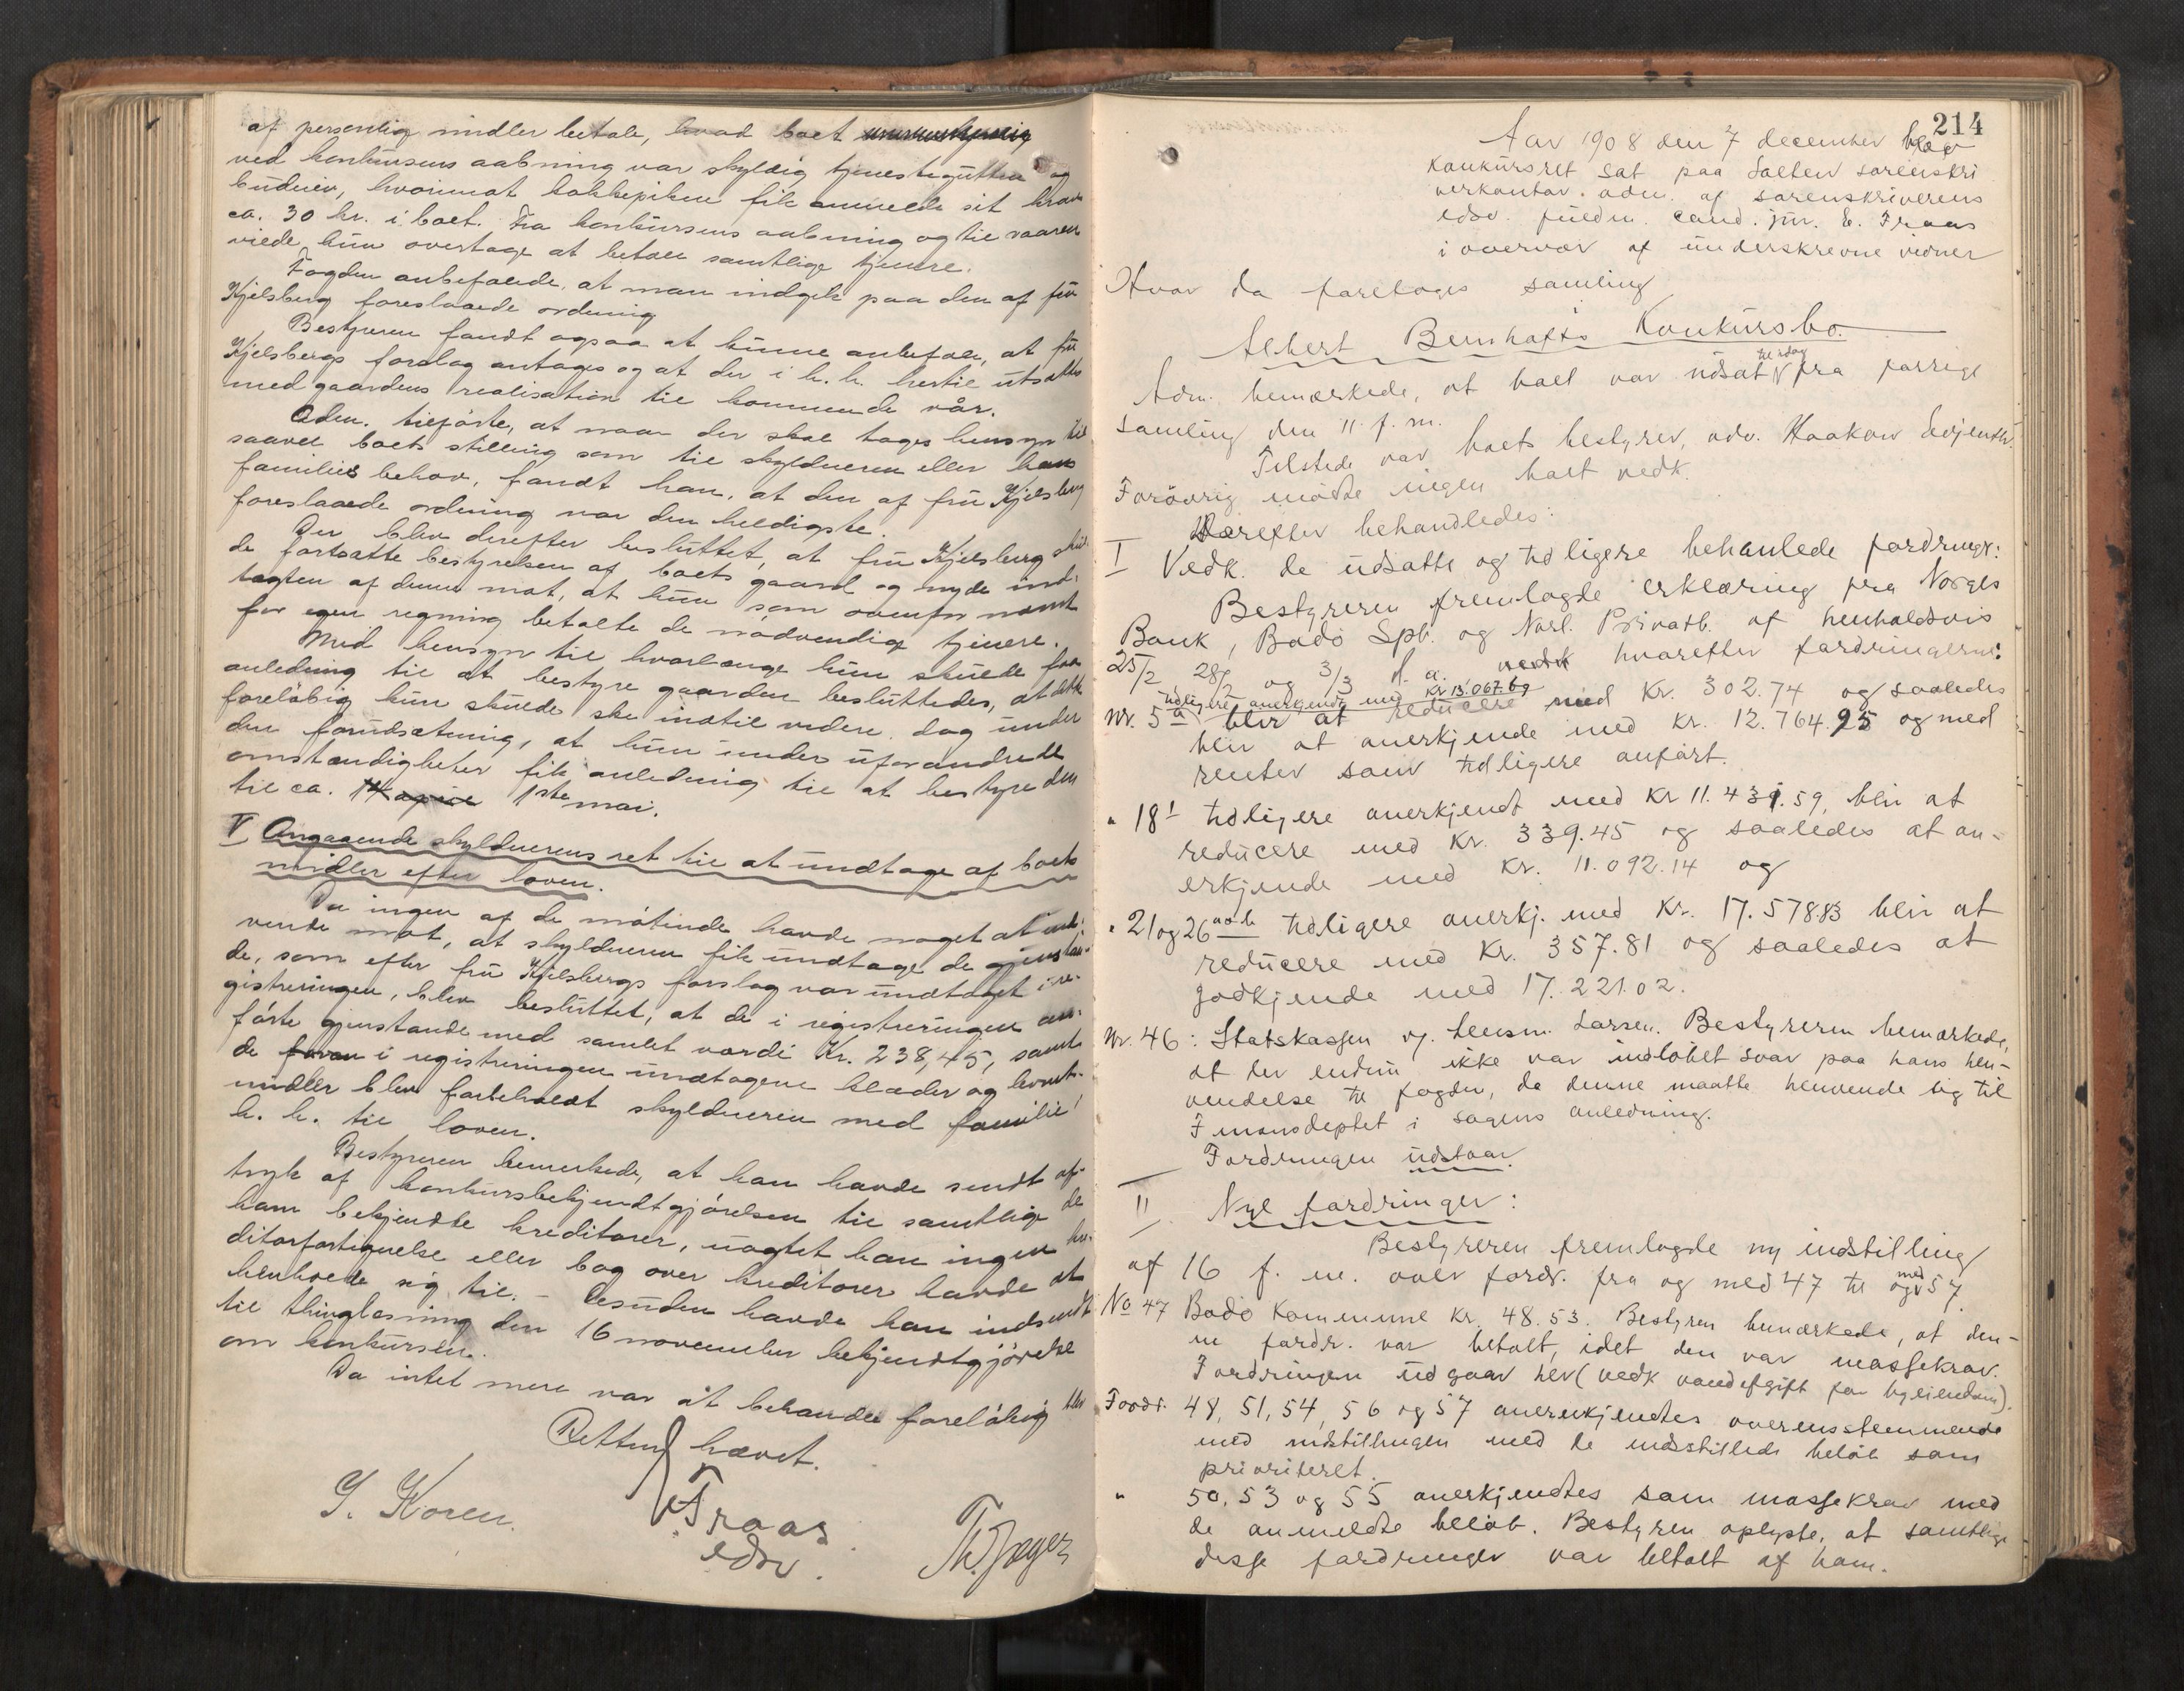 af personlig midler betale, hvad boet
ved konkursens aabning var skyldig tjenestegutten og
budeien, hvorimot kokkepiken fik anmelde sit krav
ca. 30 kr. i boet. Fra konkursens aabning og til vaaren
vilde hun overtage at betale samtlige tjenere.
Fogden anbefalede, at man indgik paa den af fru
Kjelsberg foreslaaede ordning
Bestyreren fandt ogsaa at kunne anbefale, at fru
Kjelsbergs forslag antages og at der i h. h. hertil utsattes
med gaardens realisation til kommende vår.
Adm. tilførte, at naar der skal tages hensyn til
saavel boets stilling som til skyldneren eller hans
families behov, fandt han, at den af fru Kjelsberg
foreslaaede ordning var den heldigste.
Der blev derefter besluttet, at fru Kjelsberg skul-
de fortsatte bestyrelsen af boets gaard og nyde ind-
tægten af denne mot, at hun som ovenfor nævnt
for egen regning betalte de nødvendige tjenere.
Med hensyn til hvorlænge hun skulde faa
anledning til at bestyre gaarden besluttedes, at dette
foreløbig kun skulde ske indtil videre, dog under
den forudsætning, at hun under uforandrede
omstændigheter fik anledning til at bestyre den
til ca. 14 april 1ste mai.
V Angaaende skyldnerens ret til at undtage af boets
midler efter loven.
Da ingen af de møtende havde noget at ind-
vende mot, at skyldneren fik undtage de gjenstan-
de, som efter fru Kjelsbergs forslag var undtaget i re-
gistreringen, blev besluttet, at de i registreringen an-
førte gjenstande med samlet værdi Kr. 238,45, samt
de foran i registreringen undtagene klæder og levnets-
midler blev forbeholdt skyldneren med familie
h. h. til loven.
Bestyreren bemerkede, at han havde sendt af-
tryk af konkursbekjendtgjørelsen til samtlige de
ham bekjendte kreditorer, uagtet han ingen kre-
ditorfortegnelse eller bog over kreditorer havde at
henholde sig til. – Desuden havde han indsendt
til thinglæsning den 16 november bekjendtgjørelse
om konkursen.
Da intet mere var at behandle foreløbig blev
Retten hævet.
J. Koren.
Fraas
edsv.
Th. Jæger
214
Aar 1908 den 7 december blev
konkursret sat paa Salten sorenskri
verkontor. adm. af sorenskriverens
edsv. fuldm. cand. jur. E. Fraas
i overvær af underskrevne vidner
Hvor da foretoges samling
Albert Bernhafts Konkursbo.
til idag
Adm. bemærkede, at boet var udsat fra forrige
samling den 11. f. m.
Tilstede var boets bestyrer, adv. Haakon Evjenth.
Forøvrig mødte ingen boet vedk.
Derefter behandledes:
I Vedk. de udsatte og tidligere behanlede fordringr:
Bestyreren fremlagde erklæring fra Norges
Bank, Bodø Spb. og Norl. Privatb. af henholdsvis
25/2 28/2 og 3/3 d. a. hvorefter fordringerne:
tidligere anerkjendt med Kr 13.067.69
Nr. 5a blir at reducere med Kr. 302.74 og saaledes
blir at anerkjende med kr. 12.764.95 og med
renter som tidligere anført.
" 18 1 tidligere anerkjendt med Kr 11.431.59, blir at
reducere med Kr. 339.45 og saaledes at an-
erkjende med Kr. 11.092.14 og
" 21 og 26 a o b tidligere anerkj. med Kr. 17.578.83 blir at
reducere med Kr. 357.81 og saaledes at
godkjende med 17.221.02.
Nr. 46: Statskassen v. Lensm. Larsen. Bestyreren bemærkede,
at der endnu ikke var indløbet svar paa hans hen-
vendelse til fogden, da denne maatte henvende sig til
Finansdeptet i sagens anledning.
Fordringen udstaar.
II. Nye fordringer:
Bestyreren fremlagde ny indstilling
af 16 f. m. over fordr. fra og med 47 til og med 57.
No 47 Bodø Kommune Kr. 48.53. Bestyren bemærkede, at den-
ne fordr. var betalt, idet den var massekrav.
Fordringen udgaar her (vedk vandafgift for byeiendom).
Fordr. 48, 51, 54, 56 og 57 anerkjendtes overensstemmende
med indstillingen med de indstillede beløb som
prioriteret.
" 50, 53 og 55 anerkjendtes som massekrav med
de anmeldte beløb. Bestyren oplyste, at samtlige
disse fordringer var betalt af ham.